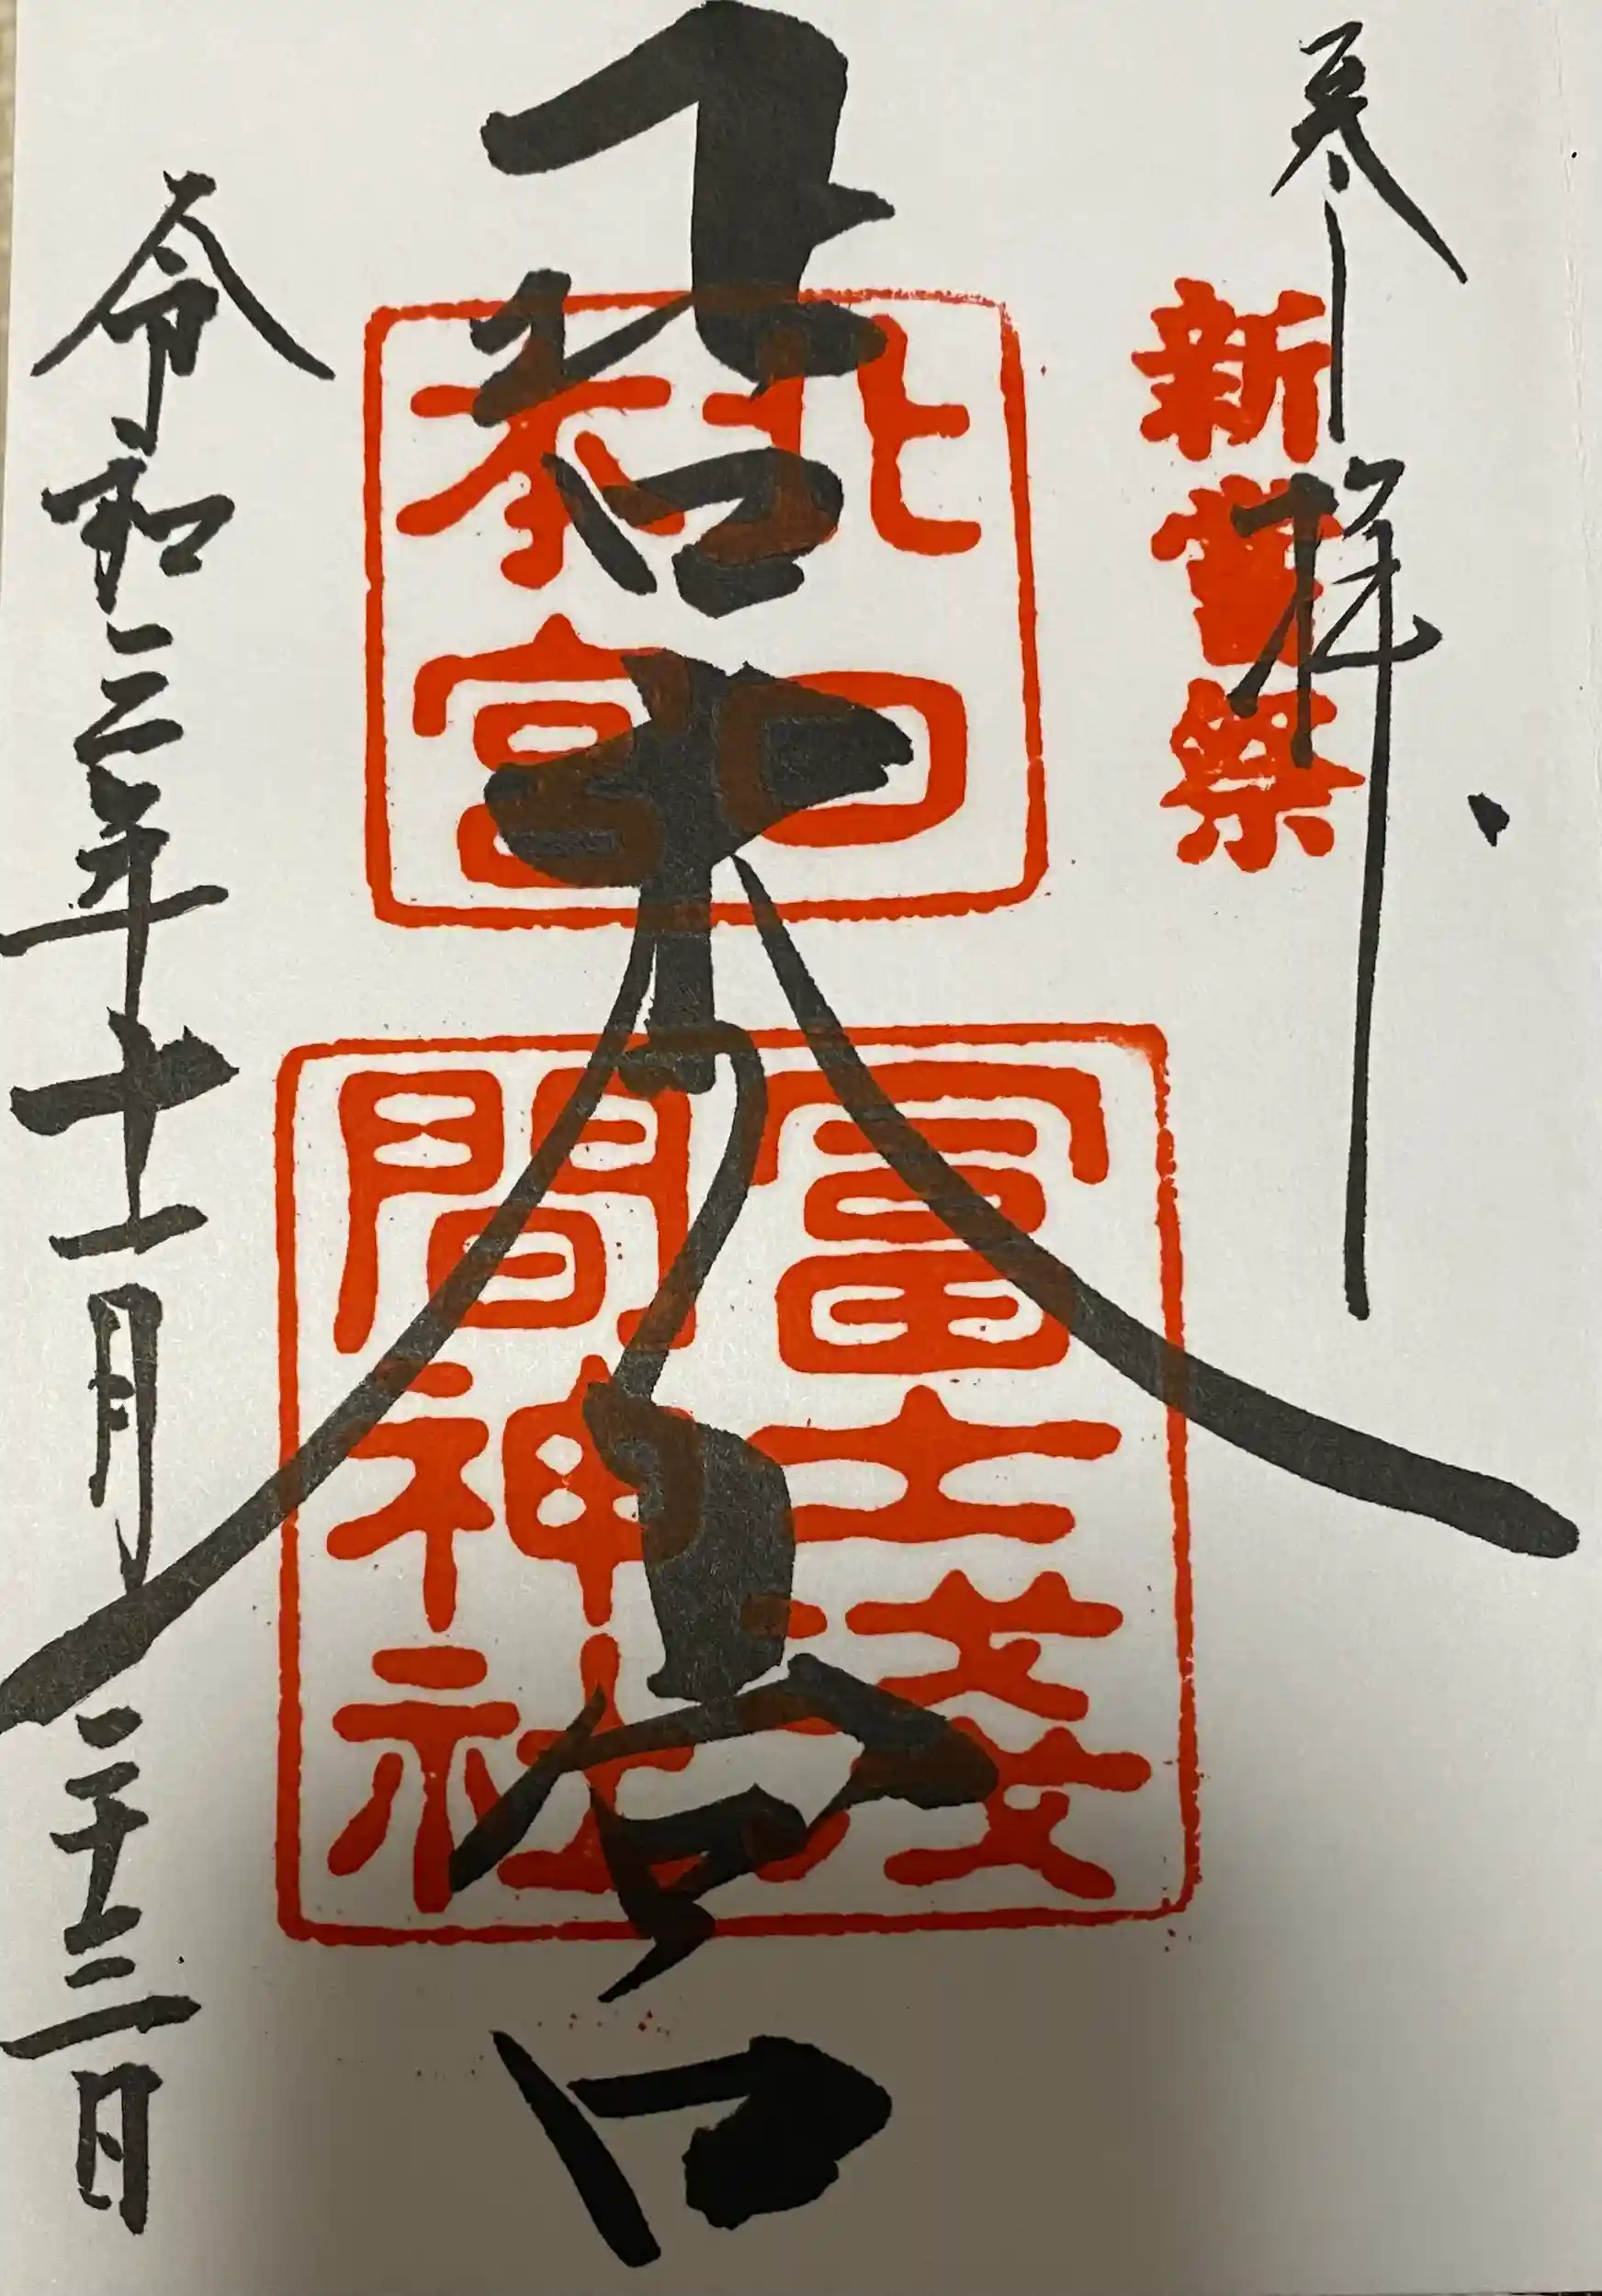 奉拝
新嘗祭
北口本宮
北口
本宮
富士淺
間神社
令和三年十一月二十三日